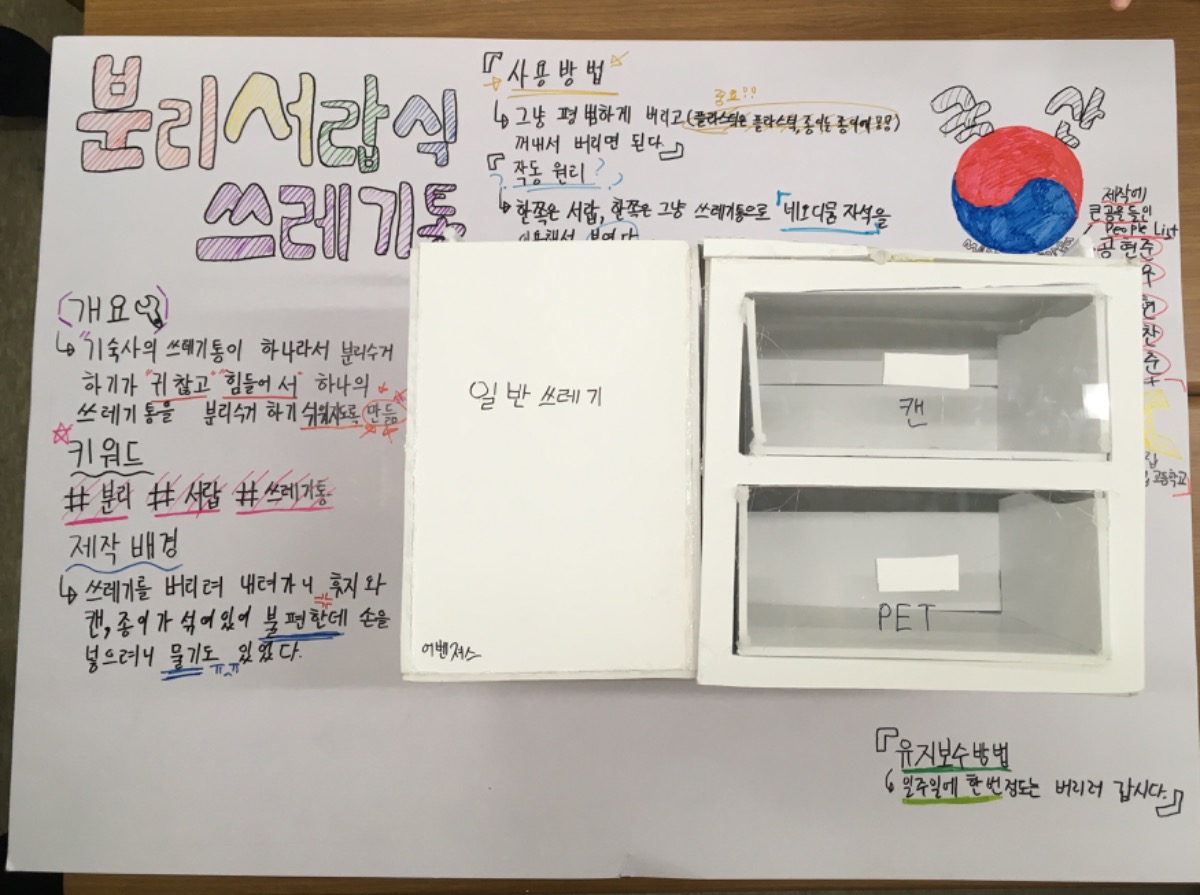 분리서랍식
쓰레기통
『사용방법
↳ 그냥 평범하게 버리고 (플라스틱은 플라스틱, 종이는 종이에
중요!!
꺼내서 버리면 된다.』
『작동 원리?
↳ 한쪽은 서랍, 한쪽은 그냥 쓰레기통으로 「네오디뮴 자석을
국산
제작에
큰 공을 들인
People List
공현준
개요
↳ "기숙사의 쓰레기통이 하나라서 분리수거
하기가 "귀찮고" "힘들어서" 하나의
쓰레기통을 분리수거 하기 쉬워지도록 만듦
키워드
#분리 #서랍 #쓰레기통
제작 배경
↳ 쓰레기를 버리려 내려가니 휴지와
캔, 종이가 섞여있어 불편한데 손을
넣으려니 물기도 있었다.
일반쓰레기
어벤져스
캔
PET
고등학교
『유지보수방법
↳ 일주일에 한번정도는 버리러 갑시다.』